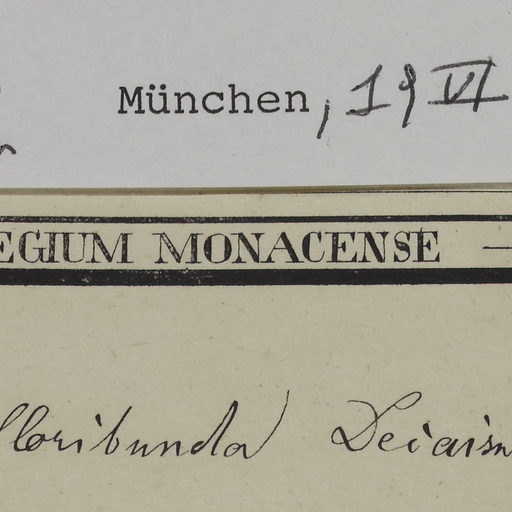 München, 19 VI
EGIUM MONACENSE —
floribunda Decaisn